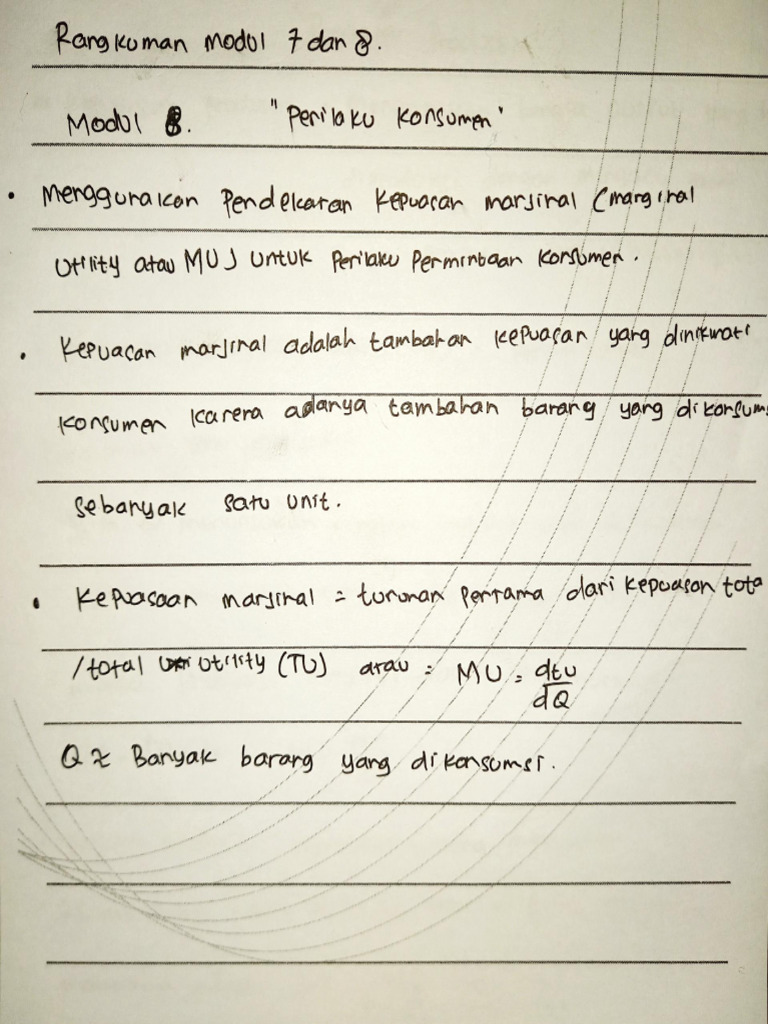 Rangkuman Modul 7 dan 8.
Modul 8. "Perilaku Konsumen"
• Menggunakan Pendekatan Kepuasan marjinal (marginal
Utility atau MU) Untuk Perilaku Permintaan Konsumen.
• Kepuasan marjinal adalah tambahan kepuasan yang dinikmati
Konsumen karena adanya tambahan barang yang dikonsumsi
Sebanyak satu unit.
• Kepuasaan marjinal = turunan Pertama dari kepuasan total
/total Utility (TU) atau = MU = dtu/dQ
Q = Banyak barang yang dikonsumsi.